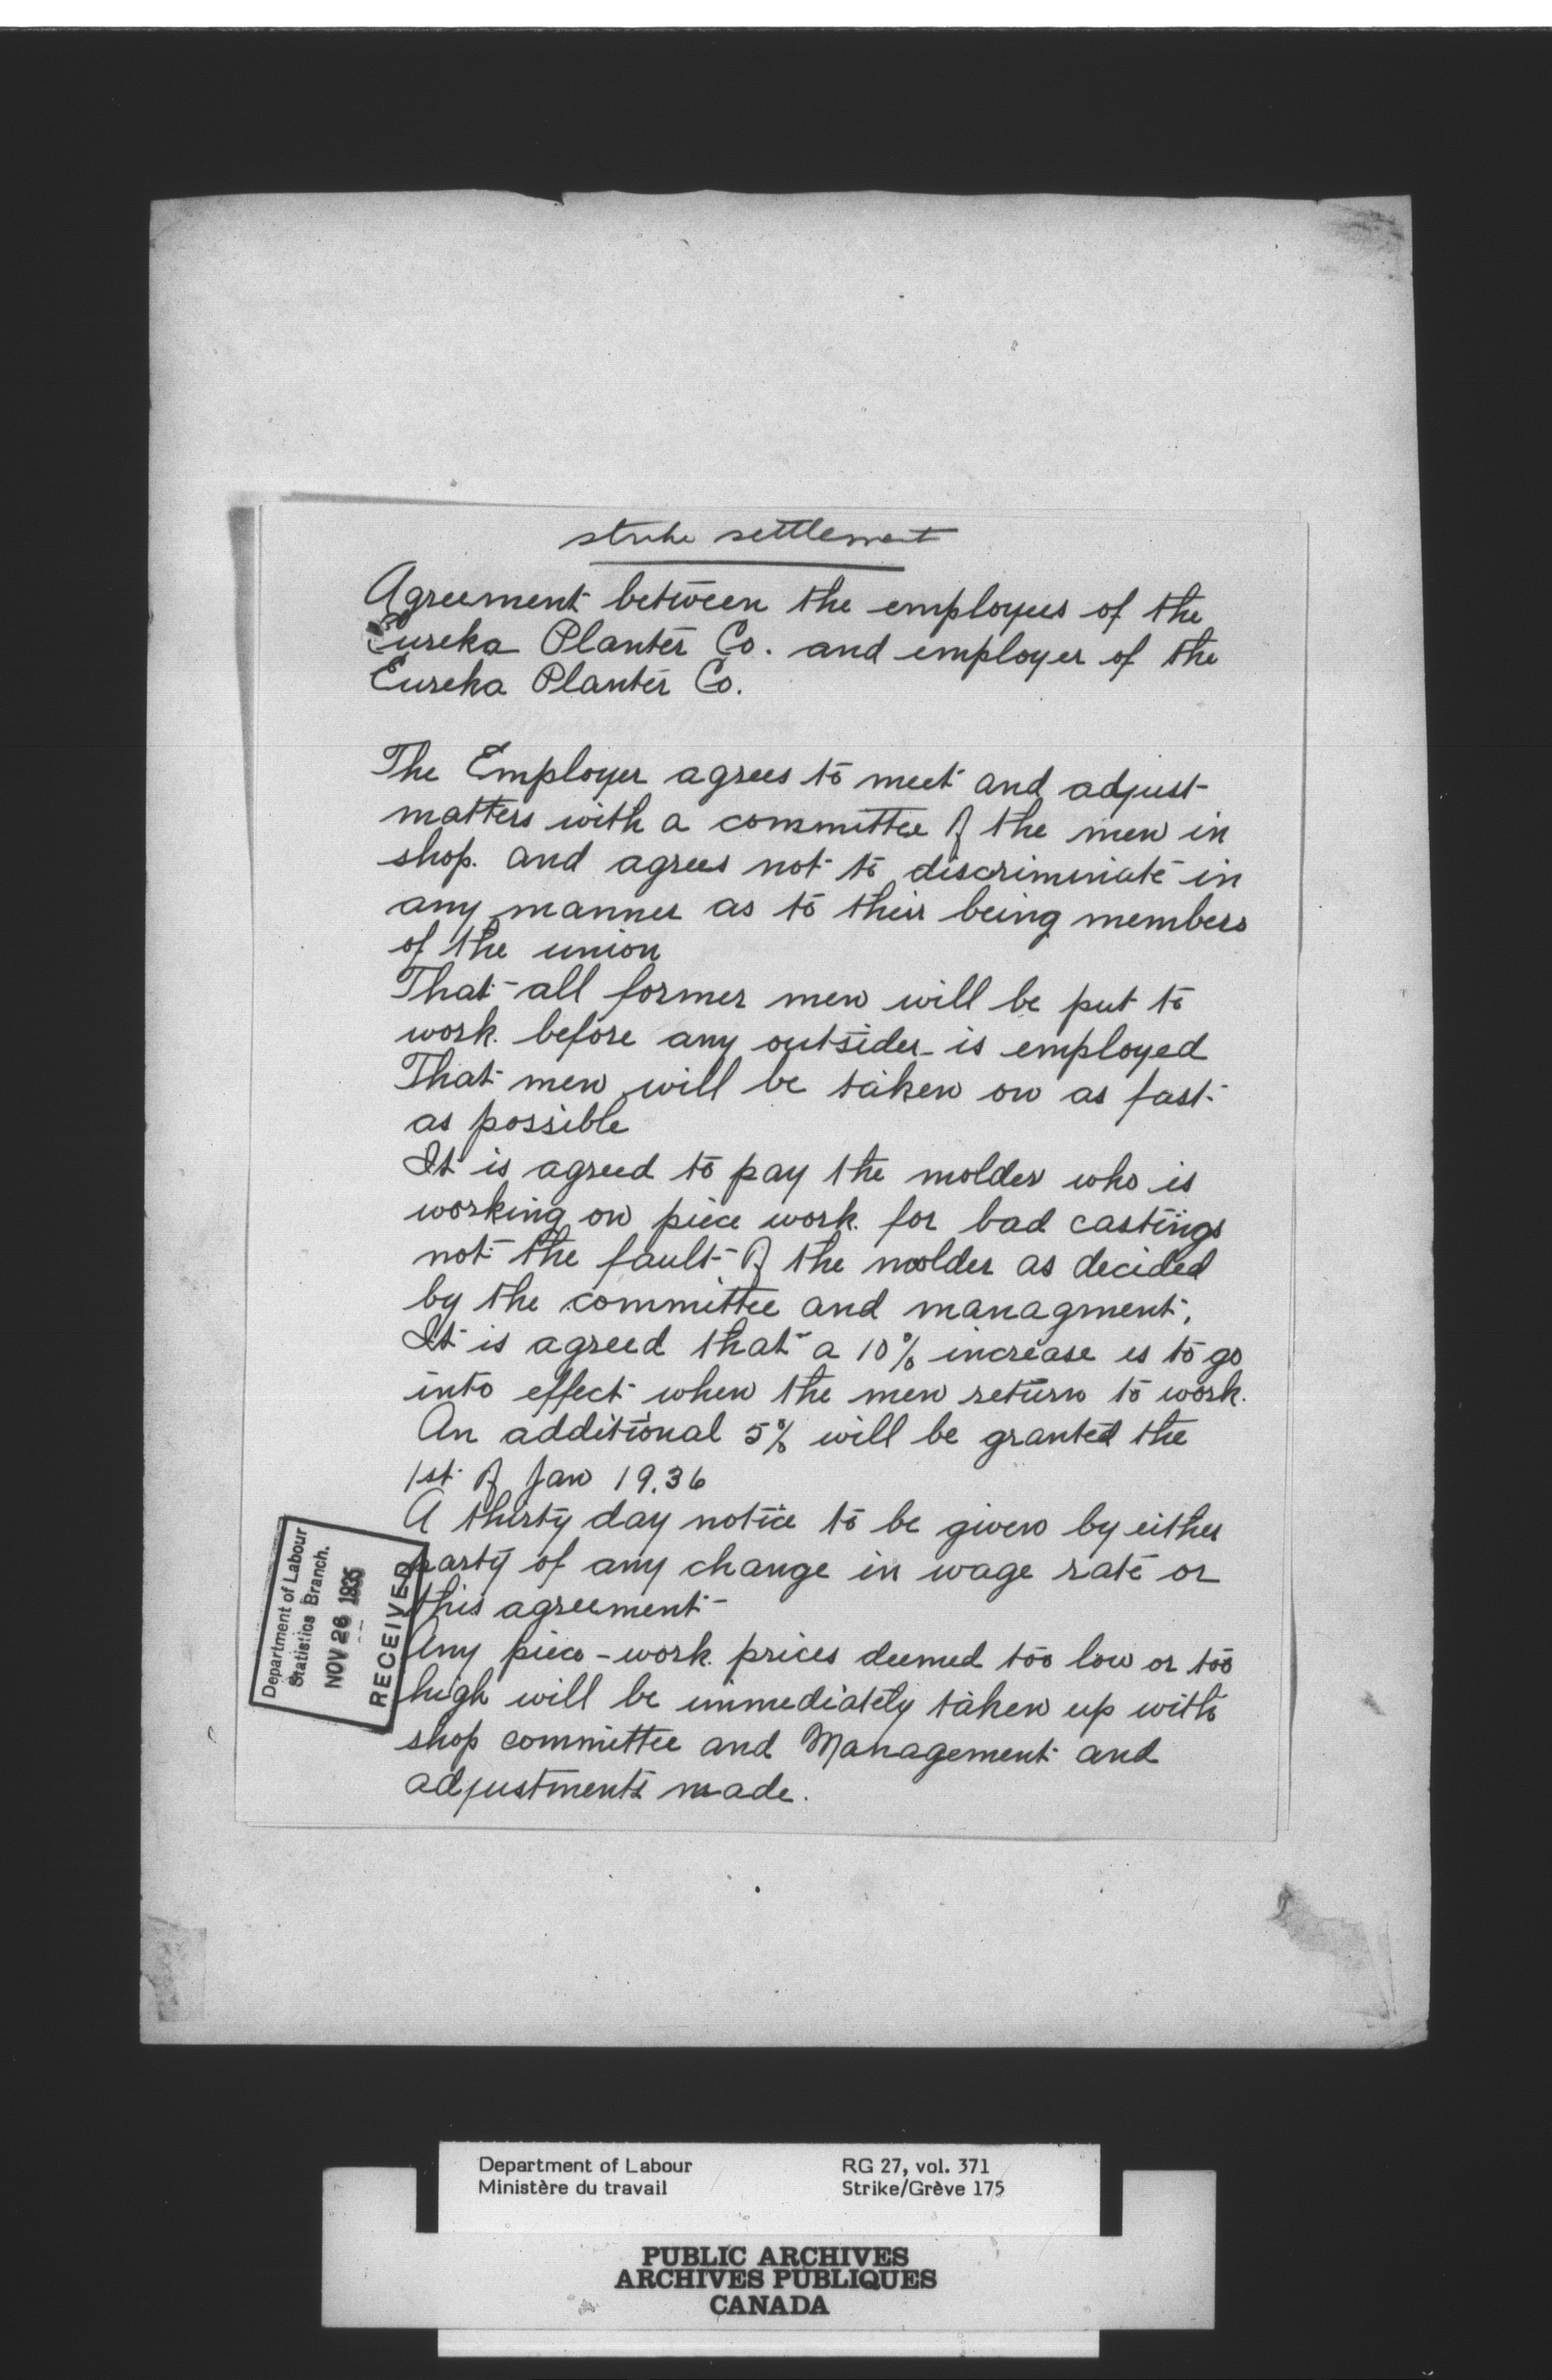 strike settlement
Agreement between the employees of the
Eureka Planter Co. and employer of the
Eureka Planter Co.
The Employer agrees to meet and adjust
matters with a committee of the men in
shop. and agrees not to discriminate in
any manner as to their being members
of the union
That all former men will be put to
work before any outsider is employed
That men will be taken on as fast
as possible
It is agreed to pay the molder who is
working on piece work for bad castings
not the fault of the molder as decided
by the committee and managment.
It is agreed that a 10% increase is to go
into effect when the men return to work.
An additional 5% will be granted the
1st of Jan 19.36
A thirty day notice to be given by either
party of any change in wage rate or
this agreement
Any piece-work prices deemed too low or too
high will be immediately taken up with
shop committee and Management and
adjustments made.
Department of Labour
Statistics Branch.
NOV 26 1935
RECEIVED
Department of Labour RG 27, vol. 371
Ministère du travail Strike/Grève 175
PUBLIC ARCHIVES
ARCHIVES PUBLIQUES
CANADA